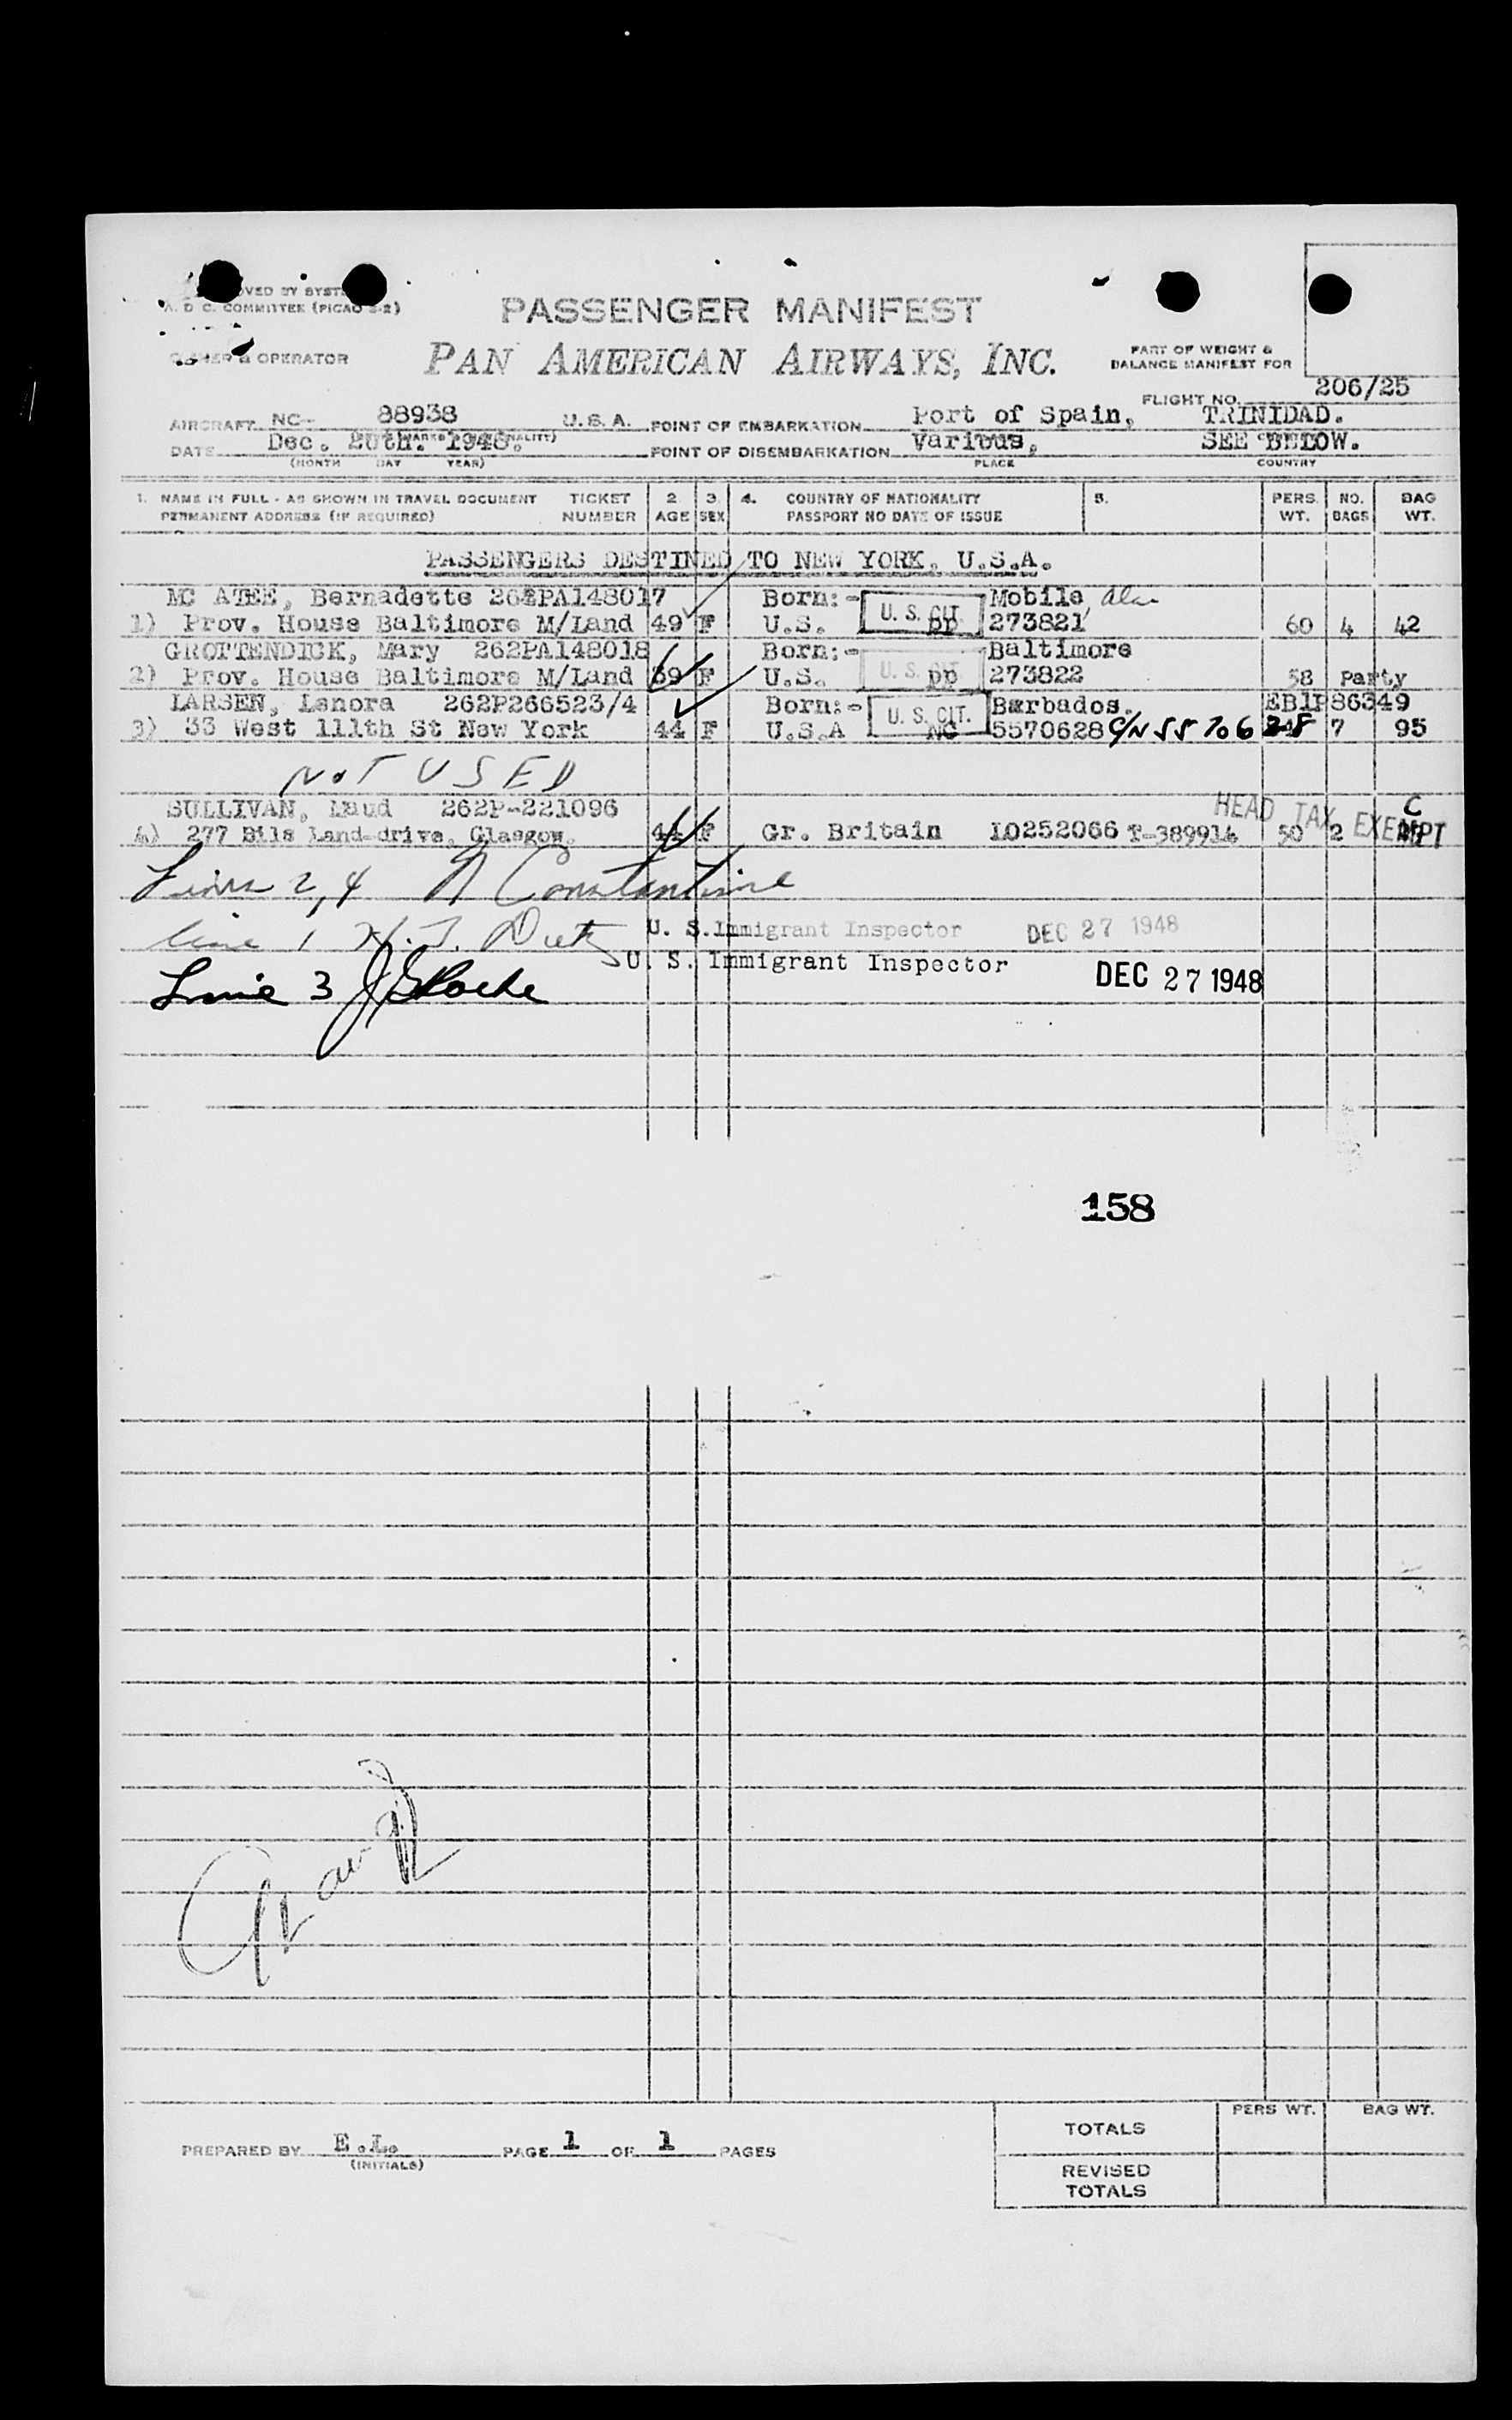 OVED BY SYST
A. D C. COMMITTEE (PICAO S-2)
PASSENGER MANIFEST
OWNER & OPERATOR
PAN AMERICAN AIRWAYS, INC.
PART OF WEIGHT &
BALANCE MANIFEST FOR
FLIGHT NO. 206/25
AIRCRAFT NC- 88938 U.S.A. POINT OF EMBARKATION Port of Spain, TRINIDAD.
DATE Dec. 1948. POINT OF DISEMBARKATION Various, SEE BELOW.
(MONTH DAY YEAR) PLACE COUNTRY
1. NAME IN FULL - AS SHOWN IN TRAVEL DOCUMENT TICKET 2 3. 4. COUNTRY OF NATIONALITY 5. PERS. NO. BAG
PERMANENT ADDRESS (IF REQUIRED) NUMBER AGE SEX PASSPORT NO DATE OF ISSUE WT. BAGS WT.
PASSENGERS DESTINED TO NEW YORK, U.S.A.
MC ATEE, Bernadette 262PA148017 Born:- Mobile, Ala
1) Prov. House Baltimore M/Land 49 F U.S. U.S. CIT. pp 273821 60 4 42
GROTTENDICK, Mary 262PA148018 Born:- Baltimore
2) Prov. House Baltimore M/Land 39 F U.S. U.S. CIT pp 273822 58 Party
LARSEN, Lenora 262P266523/4 Born:- Barbados. EB1P86349
3) 33 West 111th St New York 44 F U.S.A U.S. CIT. NC 5570628 C/N 55706 28 7 95
NOT USED
SULLIVAN, Maud 262P-221096 HEAD TAX EXEMPT C
4) 277 Bils Land-drive, Glasgow. 44 F Gr. Britain I0252066 T-389914 50 2
Lines 2, 4 N Constantine
line 1 U. S. Immigrant Inspector DEC 27 1948
U. S. Immigrant Inspector DEC 27 1948
Line 3 J Roche
158
PREPARED BY E.L. PAGE 1 OF 1 PAGES
(INITIALS)
TOTALS PERS WT. BAG WT.
REVISED
TOTALS